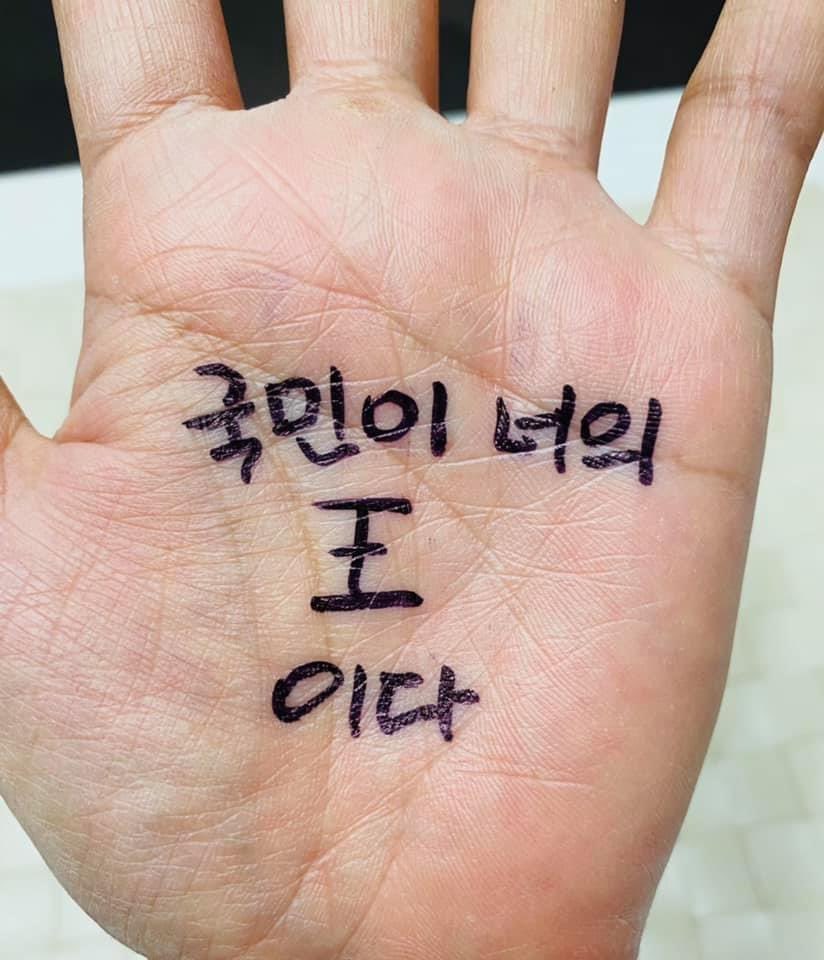 국민이 너의
王
이다